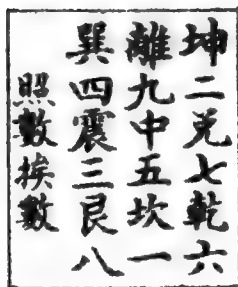 坤二兌七乾六
離九中五坎一
巽四震三艮八
照數挨數